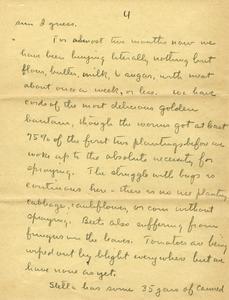 4
sun I guess.
For almost two months now we
have been buying literally nothing but
flour, butter, milk, & sugar, with meat
about once a week, or less. We have
cords of the most delicious golden
bantam, though the worms got at least
75% of the first two plantings before we
woke up to the absolute necessity for
spraying. The struggle with bugs is
continuous here - there is no use planting
cabbage, cauliflower, or corn without
spraying. Beets also suffering from
fungus in the leaves. Tomatoes are being
wiped out by blight everywhere but we
have none as yet.
Stella has some 35 jars of canned